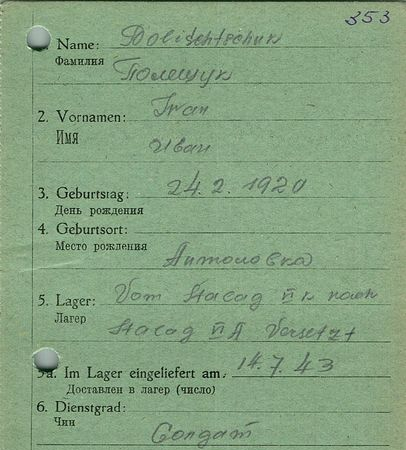 353
Name: Polischtschuk
Фамилия
Полещук
2. Vornamen: Iwan
Имя
Иван
3. Geburtstag: 24. 2. 1920
День рождения
4. Geburtsort:
Место рождения
Антоновка
5. Lager: Vom Stalag II nach
Лагер
Stalag II A Versetzt
5a. Im Lager eingeliefert am: 14. 7. 43
Доставлен в лагер (число)
6. Dienstgrad:
Чин
Солдат